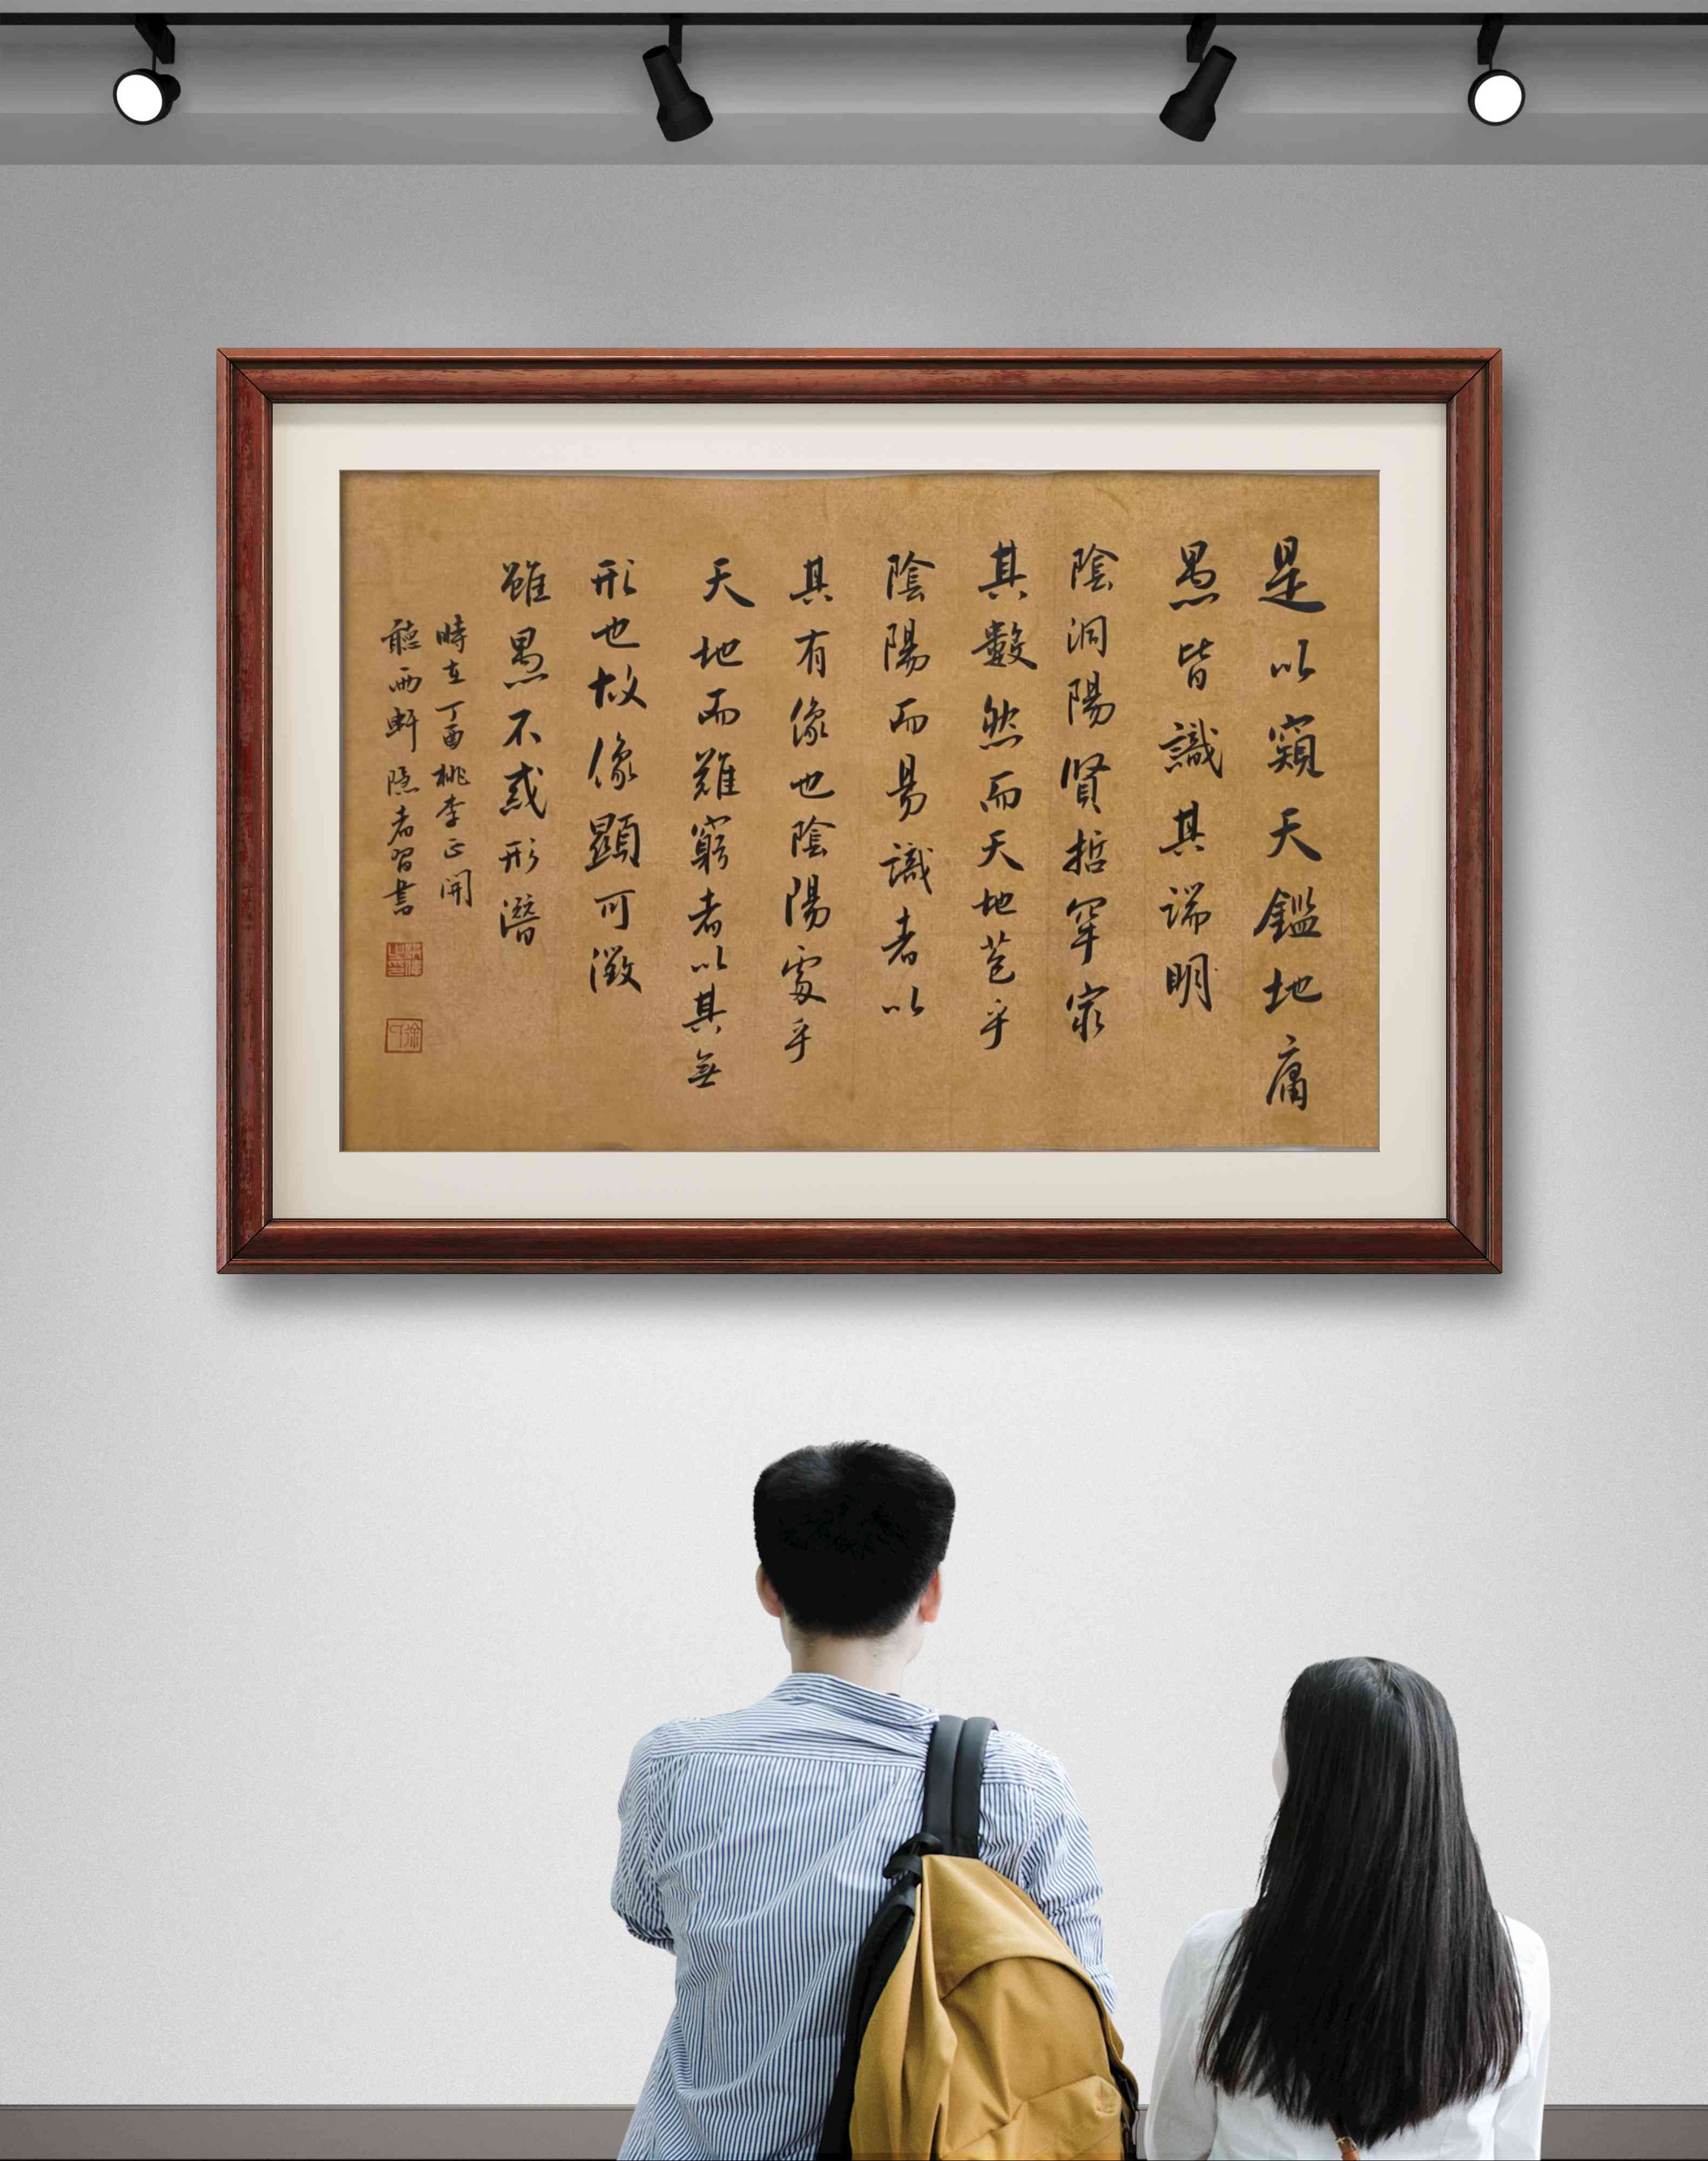 是以窺天鑑地庸
愚皆識其端明
陰洞陽賢哲罕窮
其數然而天地苞乎
陰陽而易識者以
其有像也陰陽處乎
天地而難窮者以其無
形也故像顯可徵
雖愚不惑形潛
時在丁酉桃李正開
聽雨軒隱者習書